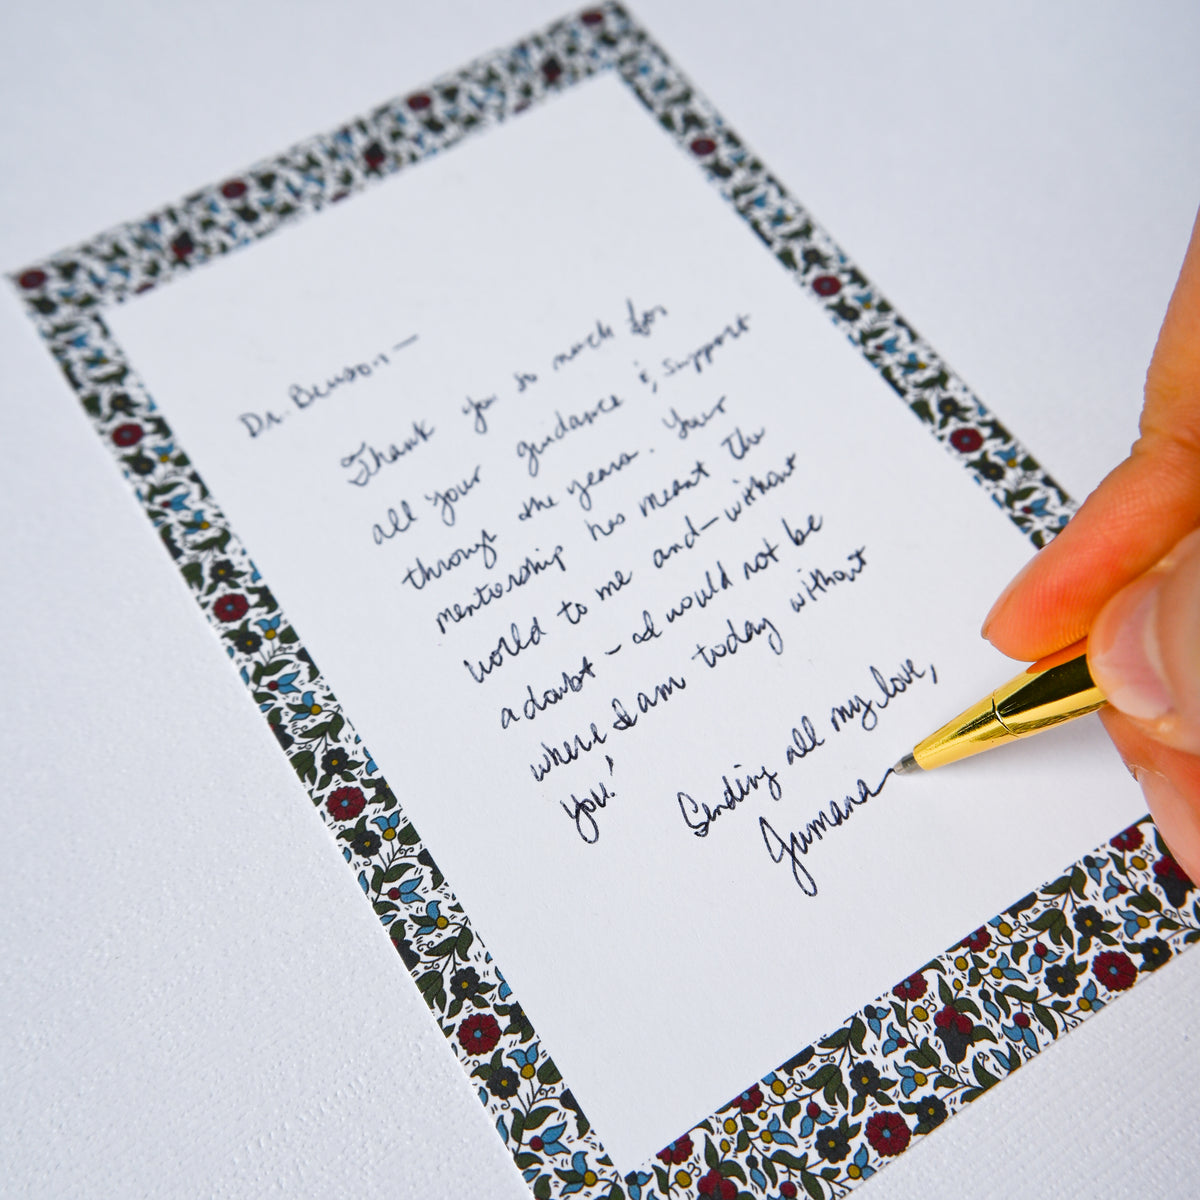 Dr. Benson —
Thank you so much for
all your guidance & support
through the years. Your
mentorship has meant the
world to me and — without
a doubt — I would not be
where I am today without
you!
Sending all my love,
Jumana